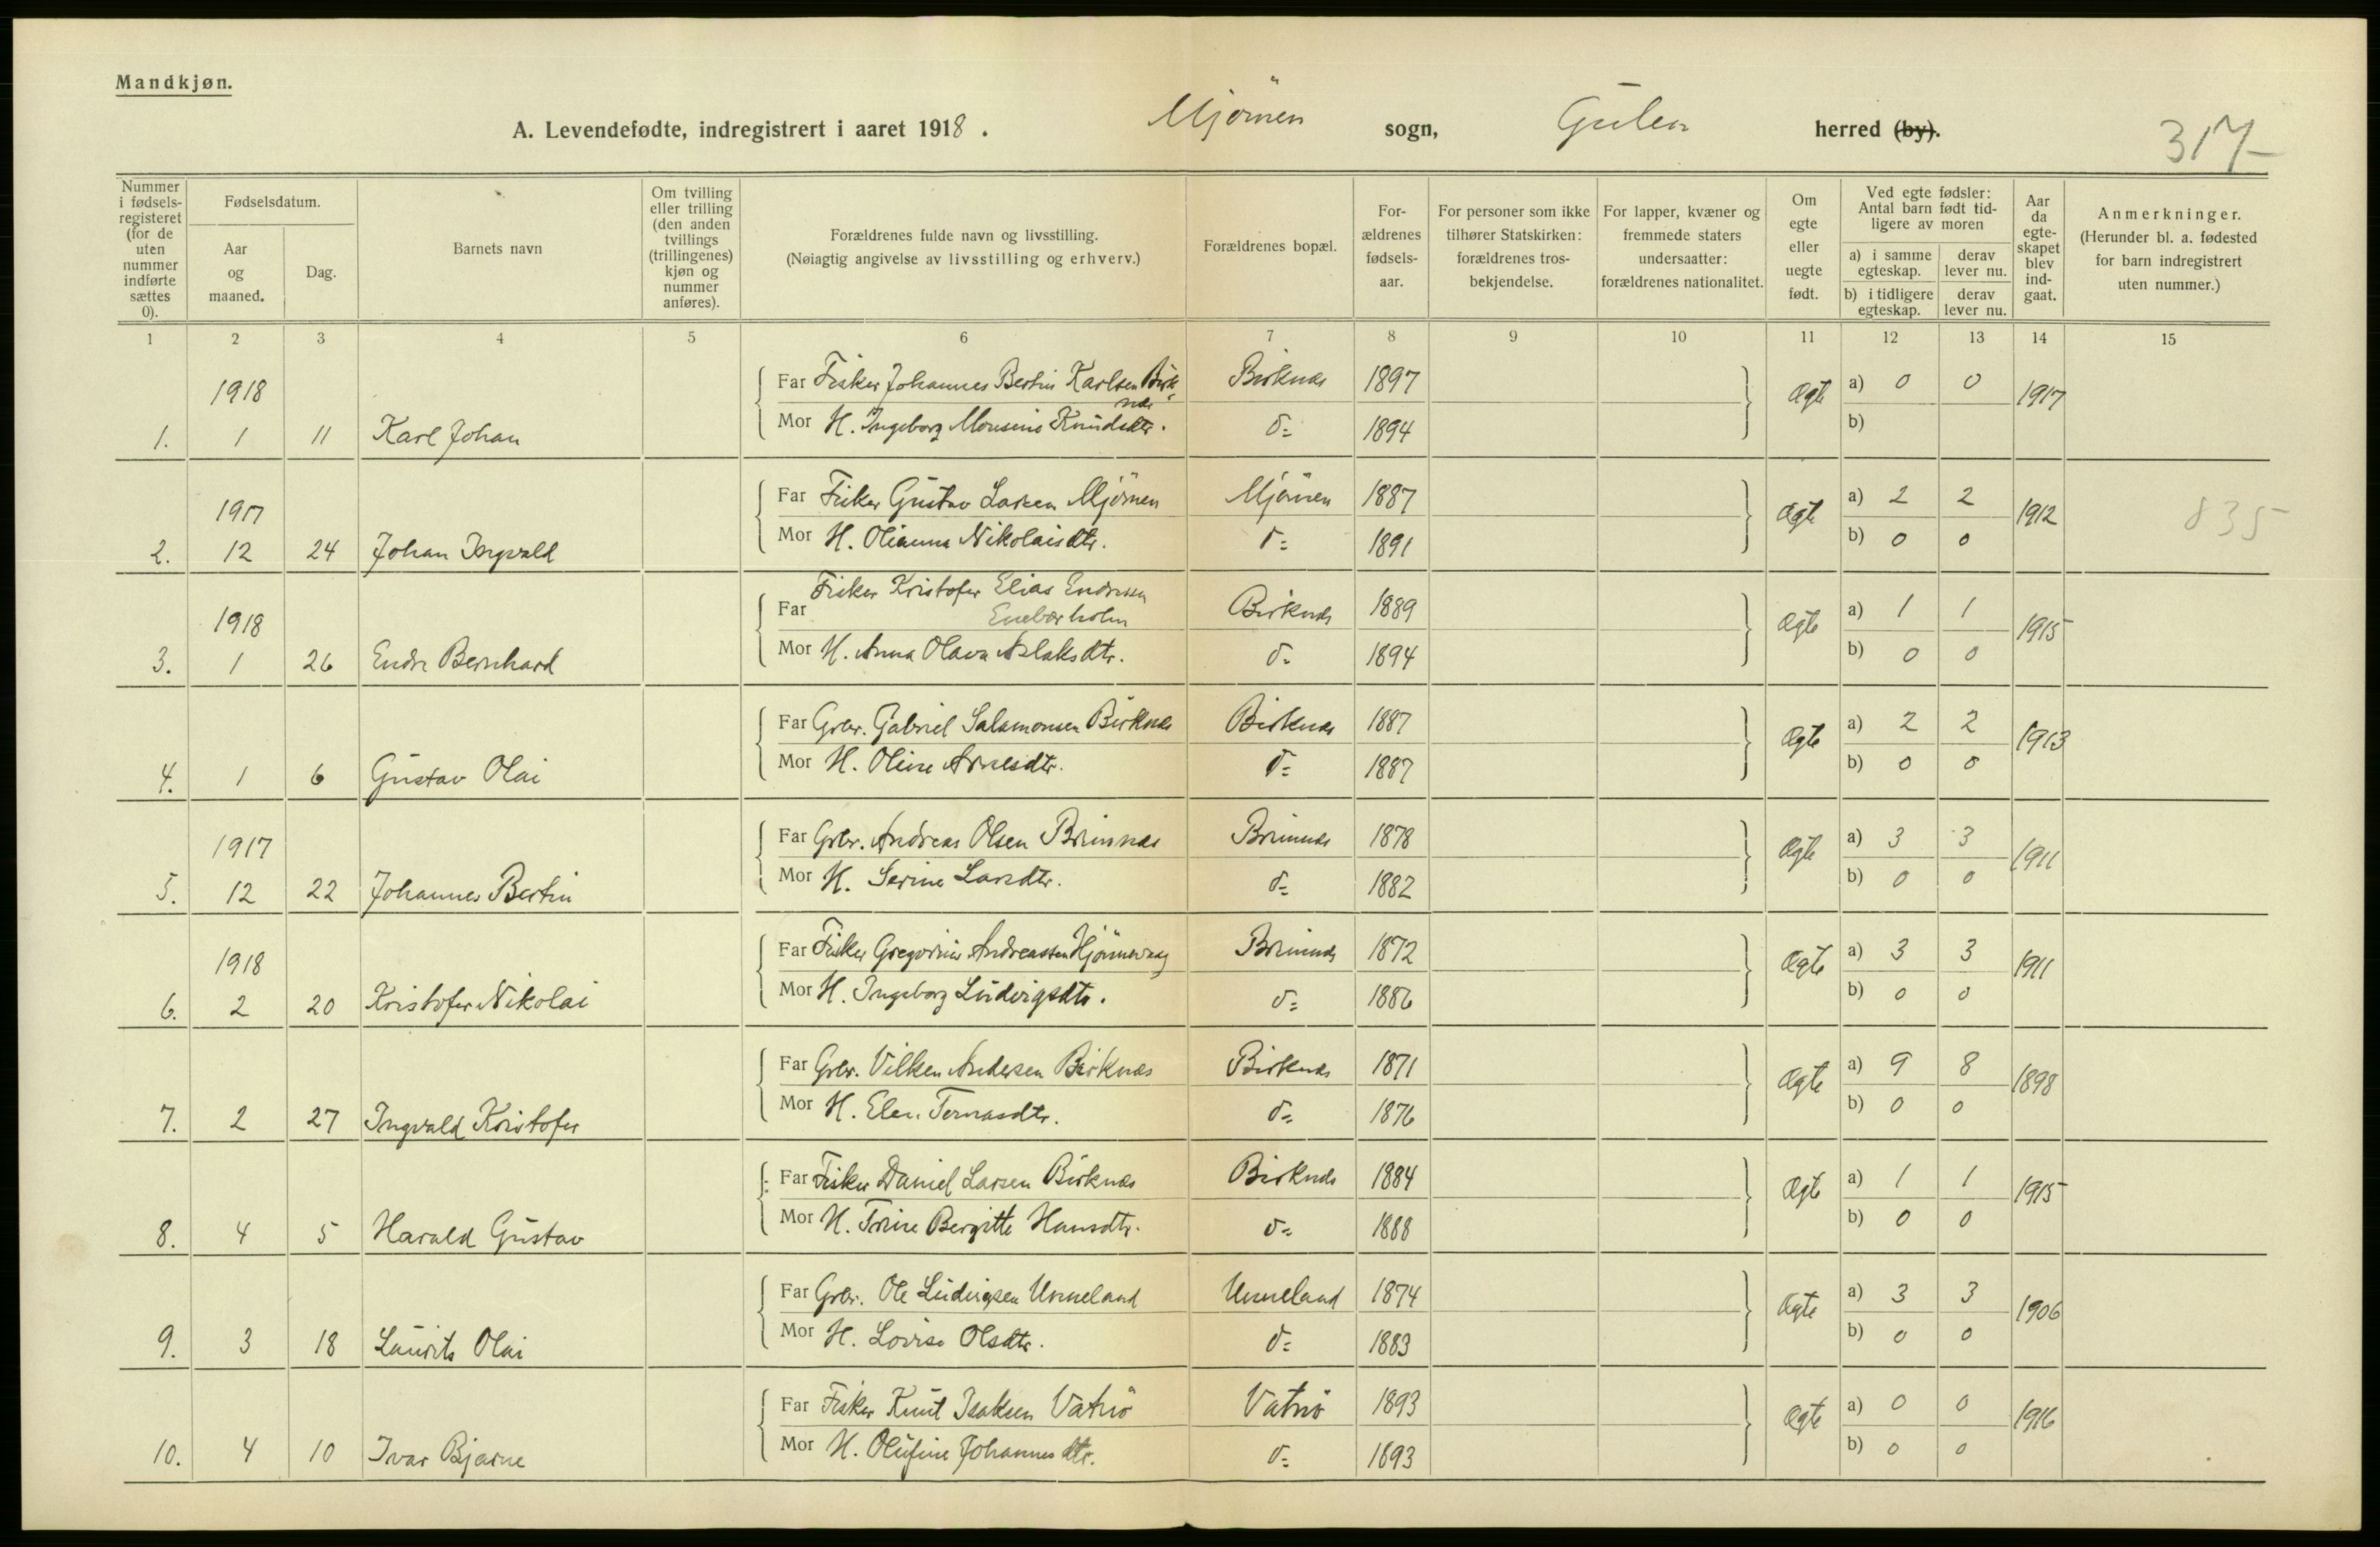 Mandkjøn.
A. Levendefødte, indregistrert i aaret 1918. Mjömen sogn, Gulen herred (by). 317
Nummer i fødsels-registeret (for de uten nummer indførte sættes 0).
Fødselsdatum.
Aar og maaned.
Dag.
Barnets navn
Om tvilling eller trilling (den anden tvillings (trillingenes) kjøn og nummer anføres).
Forældrenes fulde navn og livsstilling.
(Nøiagtig angivelse av livsstilling og erhverv.)
Forældrenes bopæl.
For-ældrenes fødsels-aar.
For personer som ikke tilhører Statskirken: forældrenes tros-bekjendelse.
For lapper, kvæner og fremmede staters undersaatter: forældrenes nationalitet.
Om egte eller uegte født.
Ved egte fødsler: Antal barn født tid-ligere av moren
a) i samme egteskap. derav lever nu.
b) i tidligere egteskap. derav lever nu.
Aar da egte-skapet blev ind-gaat.
Anmerkninger.
(Herunder bl. a. fødested for barn indregistrert uten nummer.)
1 2 3 4 5 6 7 8 9 10 11 12 13 14 15
1918 Far Fisker Johannes Bertin Karlsen Birknæs Birknæs 1897 Ægte a) 0 0 1917
1. 1 11 Karl Johan Mor H. Ingeborg Monsine Knudsdtr. d= 1894 b)
1917 Far Fisker Gustav Larsen Mjömen Mjömen 1887 Ægte a) 2 2 1912 835
2. 12 24 Johan Ingvald Mor H. Olianna Nikolaisdtr. d= 1891 b) 0 0
1918 Far Fisker Kristofer Elias Endresen
Enebærholm Birknæs 1889 Ægte a) 1 1 1915
3. 1 26 Endre Bernhard Mor H. Anna Olava Aslaksdtr. d= 1894 b) 0 0
Far Grbr. Gabriel Salamonsen Birknæs Birknæs 1887 Ægte a) 2 2 1913
4. 1 6 Gustav Olai Mor H. Oline Arnesdtr. d= 1887 b) 0 0
1917 Far Grbr. Andreas Olsen Brimnæs Brimnæs 1878 Ægte a) 3 3 1911
5. 12 22 Johannes Bertin Mor H. Serine Larsdtr. d= 1882 b) 0 0
1918 Far Fisker Gregorius Andreassen Brimnæs 1872 Ægte a) 3 3 1911
6. 2 20 Kristofer Nikolai Mor H. Ingeborg Ludvigsdtr. d= 1886 b) 0 0
Far Grbr. Vilken Andersen Birknæs Birknæs 1871 Ægte a) 9 8 1898
7. 2 27 Ingvald Kristofer Mor H. Elen d= 1876 b) 0 0
Far Fisker Daniel Larsen Birknæs Birknæs 1884 Ægte a) 1 1 1915
8. 4 5 Harald Gustav Mor H. Trine Bergitte Hansdtr. d= 1888 b) 0 0
Far Grbr. Ole Ludvigsen Unneland Unneland 1874 Ægte a) 3 3 1906
9. 3 18 Laurits Olai Mor H. Lovise Olsdtr. d= 1883 b) 0 0
Far Fisker Knut Isaksen Vatnö Vatnö 1893 Ægte a) 0 0 1916
10. 4 10 Ivar Bjarne Mor H. Olufine Johannesdtr. d= 1893 b) 0 0